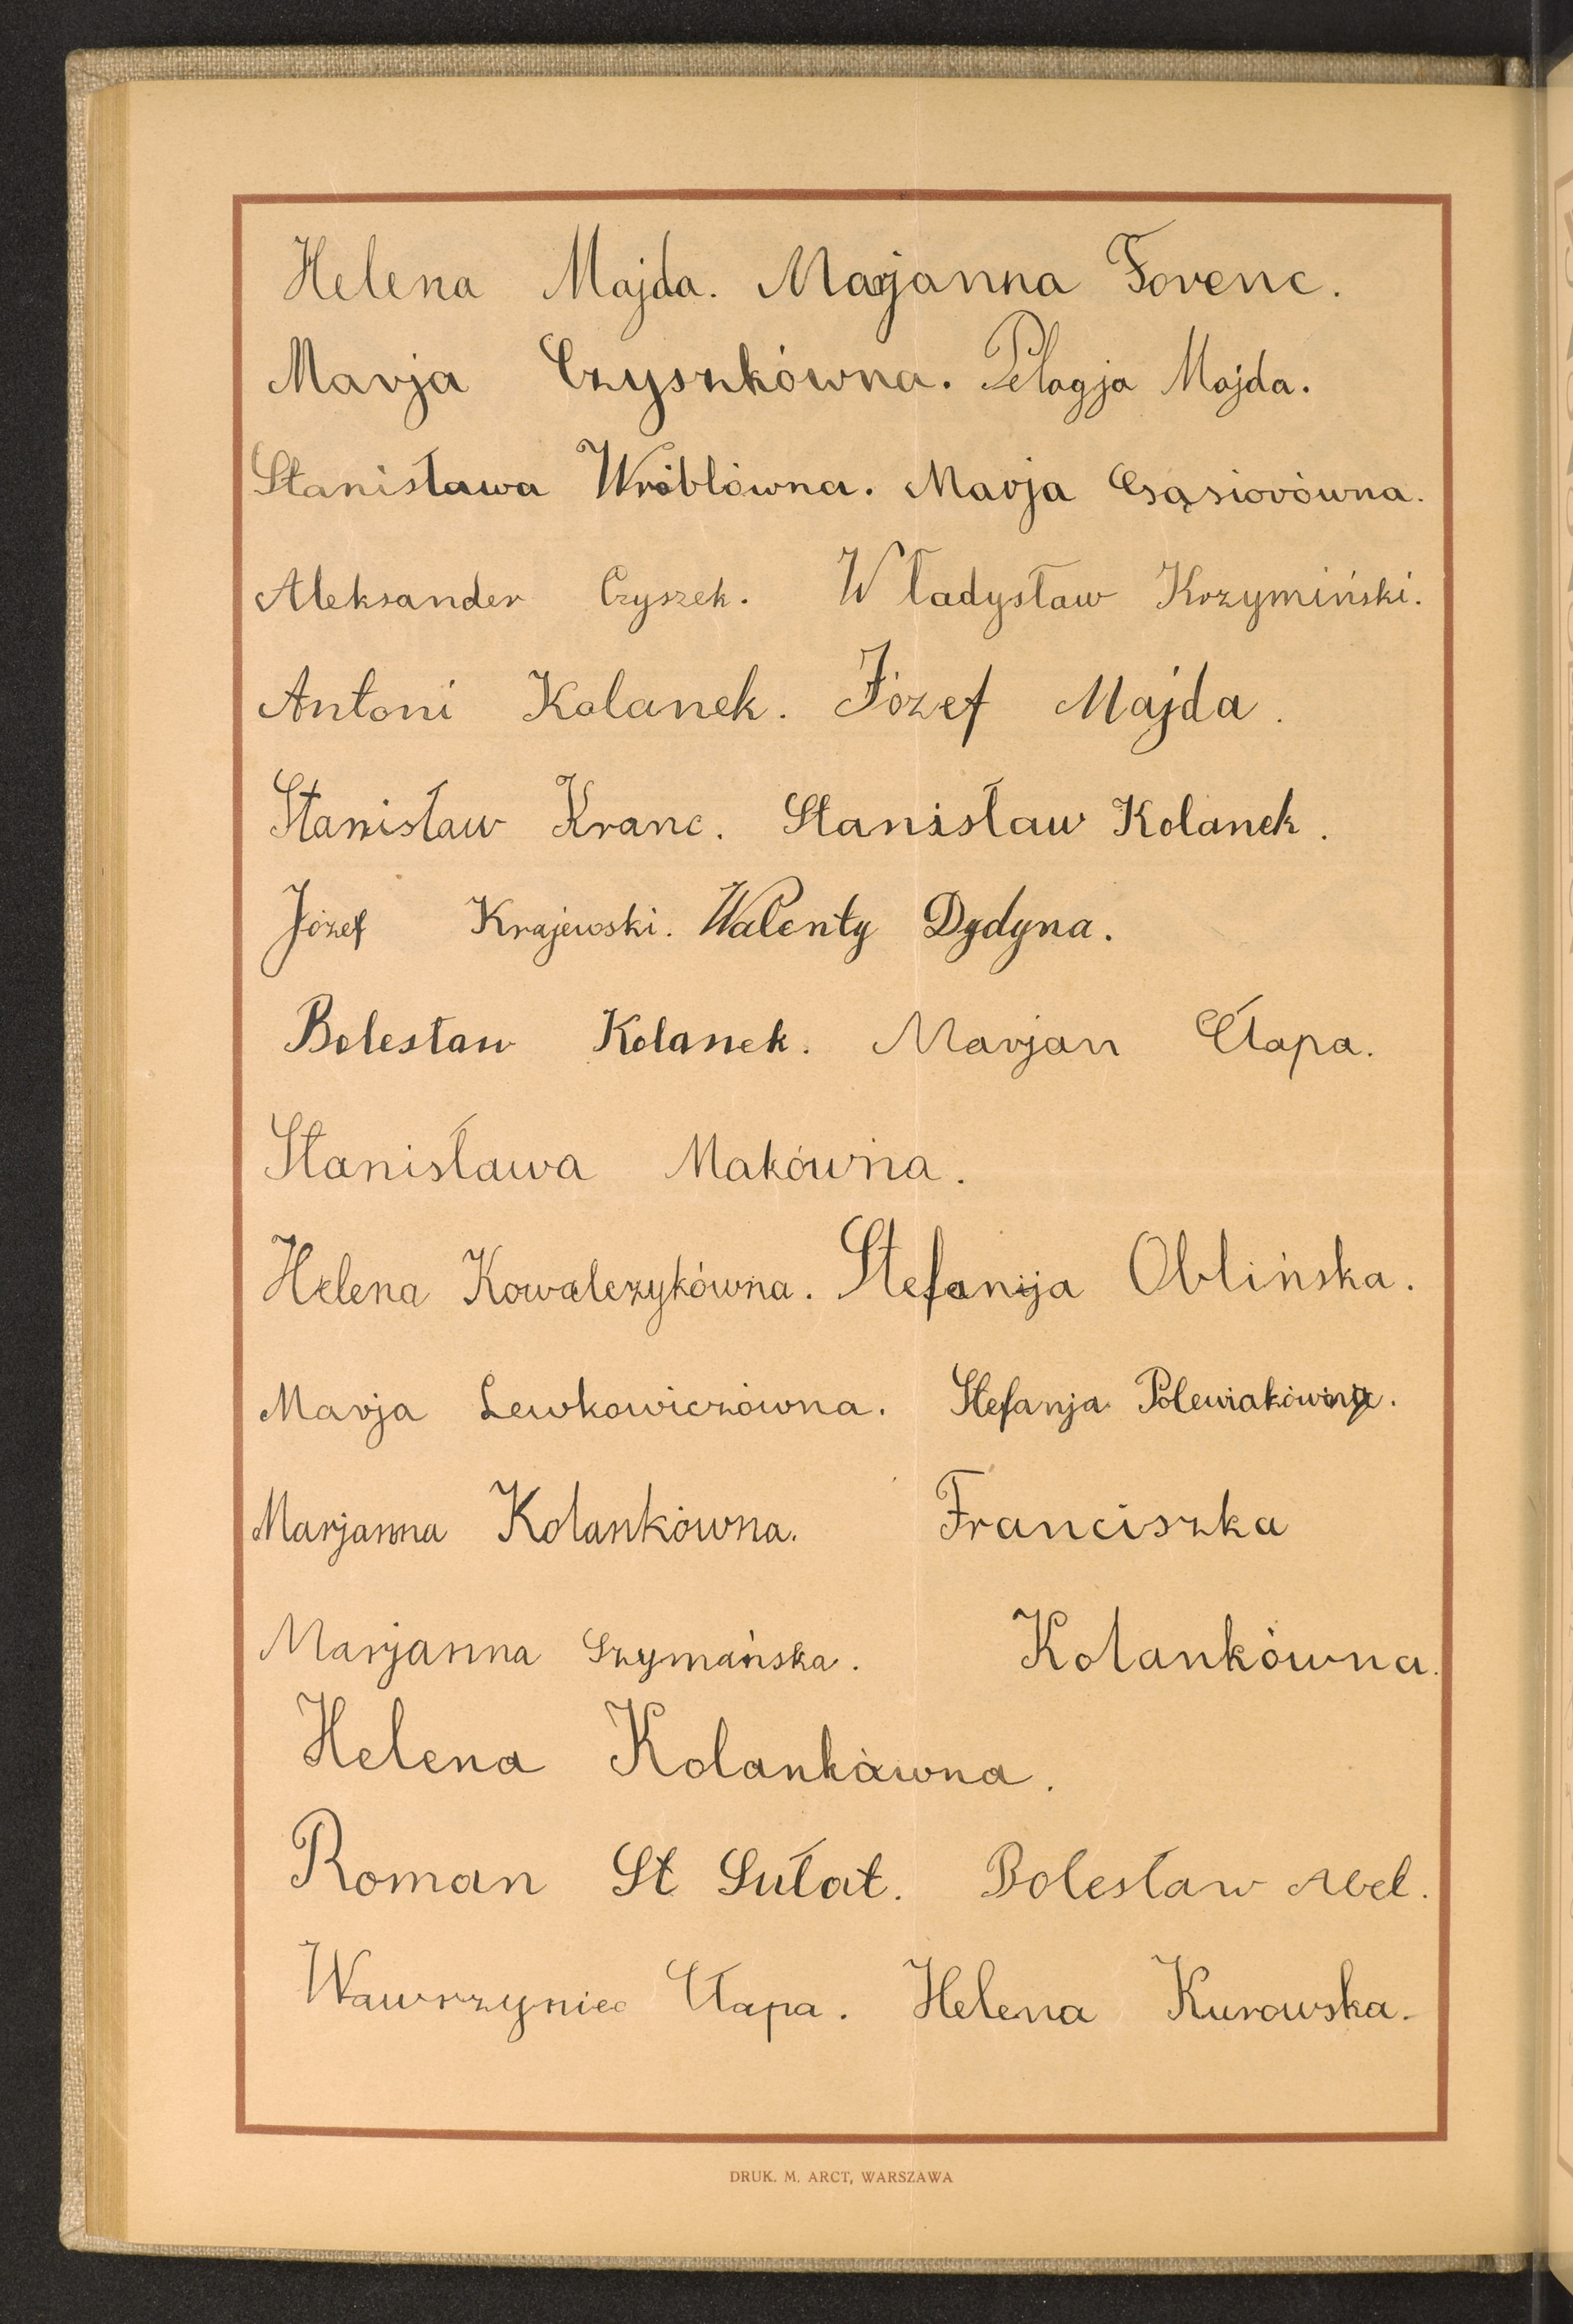 Helena Majda. Marjanna Forenc.
Marja Czyszkówna. Pelagja Majda.
Stanisława Wróblówna. Marja Gąsiorówna.
Aleksander Czyszek. Władysław Krzymiński.
Antoni Kolanek. Józef Majda.
Stanisław Kranc. Stanisław Kolanek.
Józef Krajewski. Walenty Dydyna.
Bolesław Kolanek. Marjan Człapa.
Stanisława Makówna.
Helena Kowalczykówna. Stefanija Oblińska.
Marja Lewkowiczówna. Stefanja Polewiakówna.
Marjanna Kolankówna. Franciszka
Marjanna Szymańska. Kolankówna.
Helena Kolankówna.
Roman St Sułat. Bolesław Abel.
Wawrzyniec Człapa. Helena Kurowska.
DRUK. M. ARCT, WARSZAWA